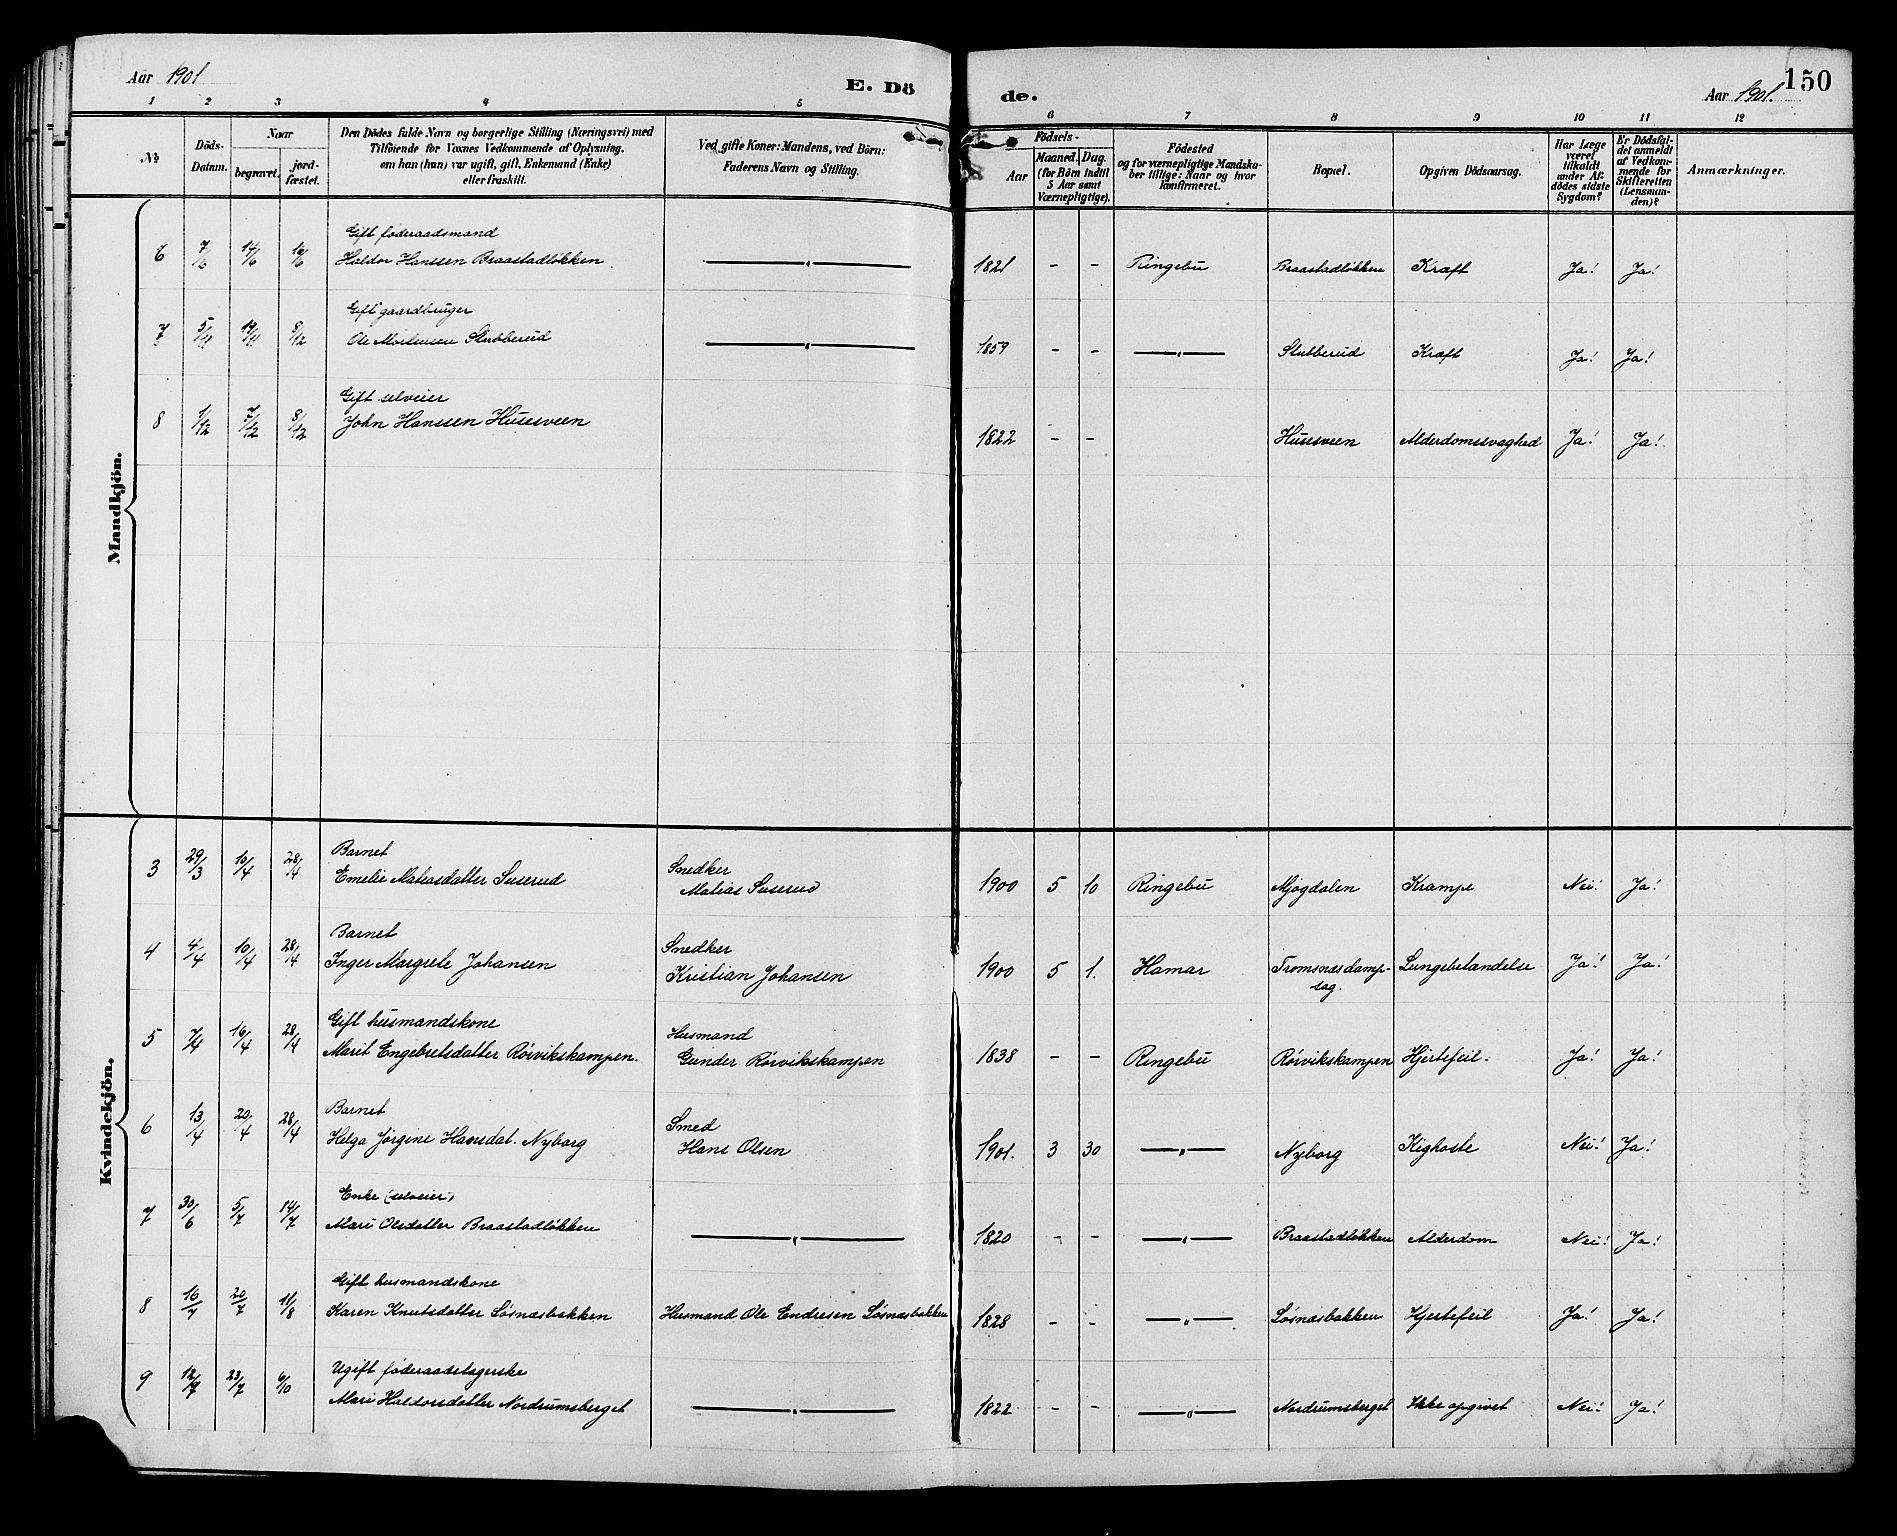 Aar 1901
E. Dö
de.
Aar 1901.
150
1 2 3 4 5 6 7 8 9 10 11 12
No
Döds-
Datum.
Naar
begravet.
jord-
fæstet.
Den Dödes fulde Navn og borgerlige Stilling (Næringsvei) med
Tilföiende for Voxnes Vedkommende af Oplysning,
om han (hun) var ugift, gift, Enkemand (Enke)
eller fraskilt.
Ved gifte Koner: Mandens, ved Börn:
Faderens Navn og Stilling.
Födsels-
Aar
Maaned. Dag.
(for Börn indtil
5 Aar samt
Værnepligtige).
Födested
og for værnepligtige Mandska-
ber tillige: Naar og hvor
konfirmeret.
Bopæl.
Opgiven Dödsaarsag.
Har Læge
været
tilkaldt
under Af-
dödes sidste
Sygdom?
Er Dödsfal-
det anmeldt
af Vedkom-
mende for
Skifteretten
(Lensman-
den)?
Anmærkninger.
Mandkjön.
Gift föderaadsmand
6 7/6 14/6 16/6 Haldor Hanssen Braastadlökken — " — 1821 - - Ringebu Braastadlökken Kræft Ja! Ja!
Gift gaardbruger
7 5/11 19/11 8/12 Ole Mortensen Stubberud — " — 1859 - - — " — Stubberud Kræft Ja! Ja!
Gift selveier
8 1/12 7/12 8/12 John Hanssen Husesveen 1822 - - Husesveen Alderdomssvaghed Ja! Ja!
Kvindekjön.
Barnet Snedker
3 29/3 10/4 28/4 Emelie Matiasdatter Suserud Matias Suserud 1900 5 10 Ringebu Mjøgdalen Krampe Nei! Ja!
Barnet Snedker
4 4/4 10/4 28/4 Inger Margrete Johansen Kristian Johansen 1900 5 1. Hamar Tromsnæsdamp- Lungebetændelse Ja! Ja!
sag.
Gift husmandskone Husmand
5 7/4 16/4 28/4 Marit Engebretsdatter Rörvikskampen. Gunder Rörvikskampen 1838 - - Ringebu Rörvikskampen Hjertefeil. Ja! Ja!
Barnet Smed
6 13/4 20/4 28/4 Helga Jørgine Hansdat. Nyborg Hans Olsen 1901. 3 30 — " — Nyborg Kighoste Nei! Ja!
Enke (selveier)
7 30/6 5/7 14/7 Mari Olsdatter Braastadlökken — " — 1820 - - — " — Braastadlökken Alderdom Nei! Ja!
Gift husmandskone
8 16/7 20/7 11/8 Karen Knutsdatter Løsnæsbakken Husmand Ole Endresen Løsnæsbakken 1828 - - — " — Løsnæsbakken Hjertefeil Ja! Ja!
Ugift föderaadstagerske
9 23/7 6/10 Mari Haldorsdatter Nordrumsberget — " — 1822 - - — " — Nordrumsberget Ikke opgivet Nei! Ja!